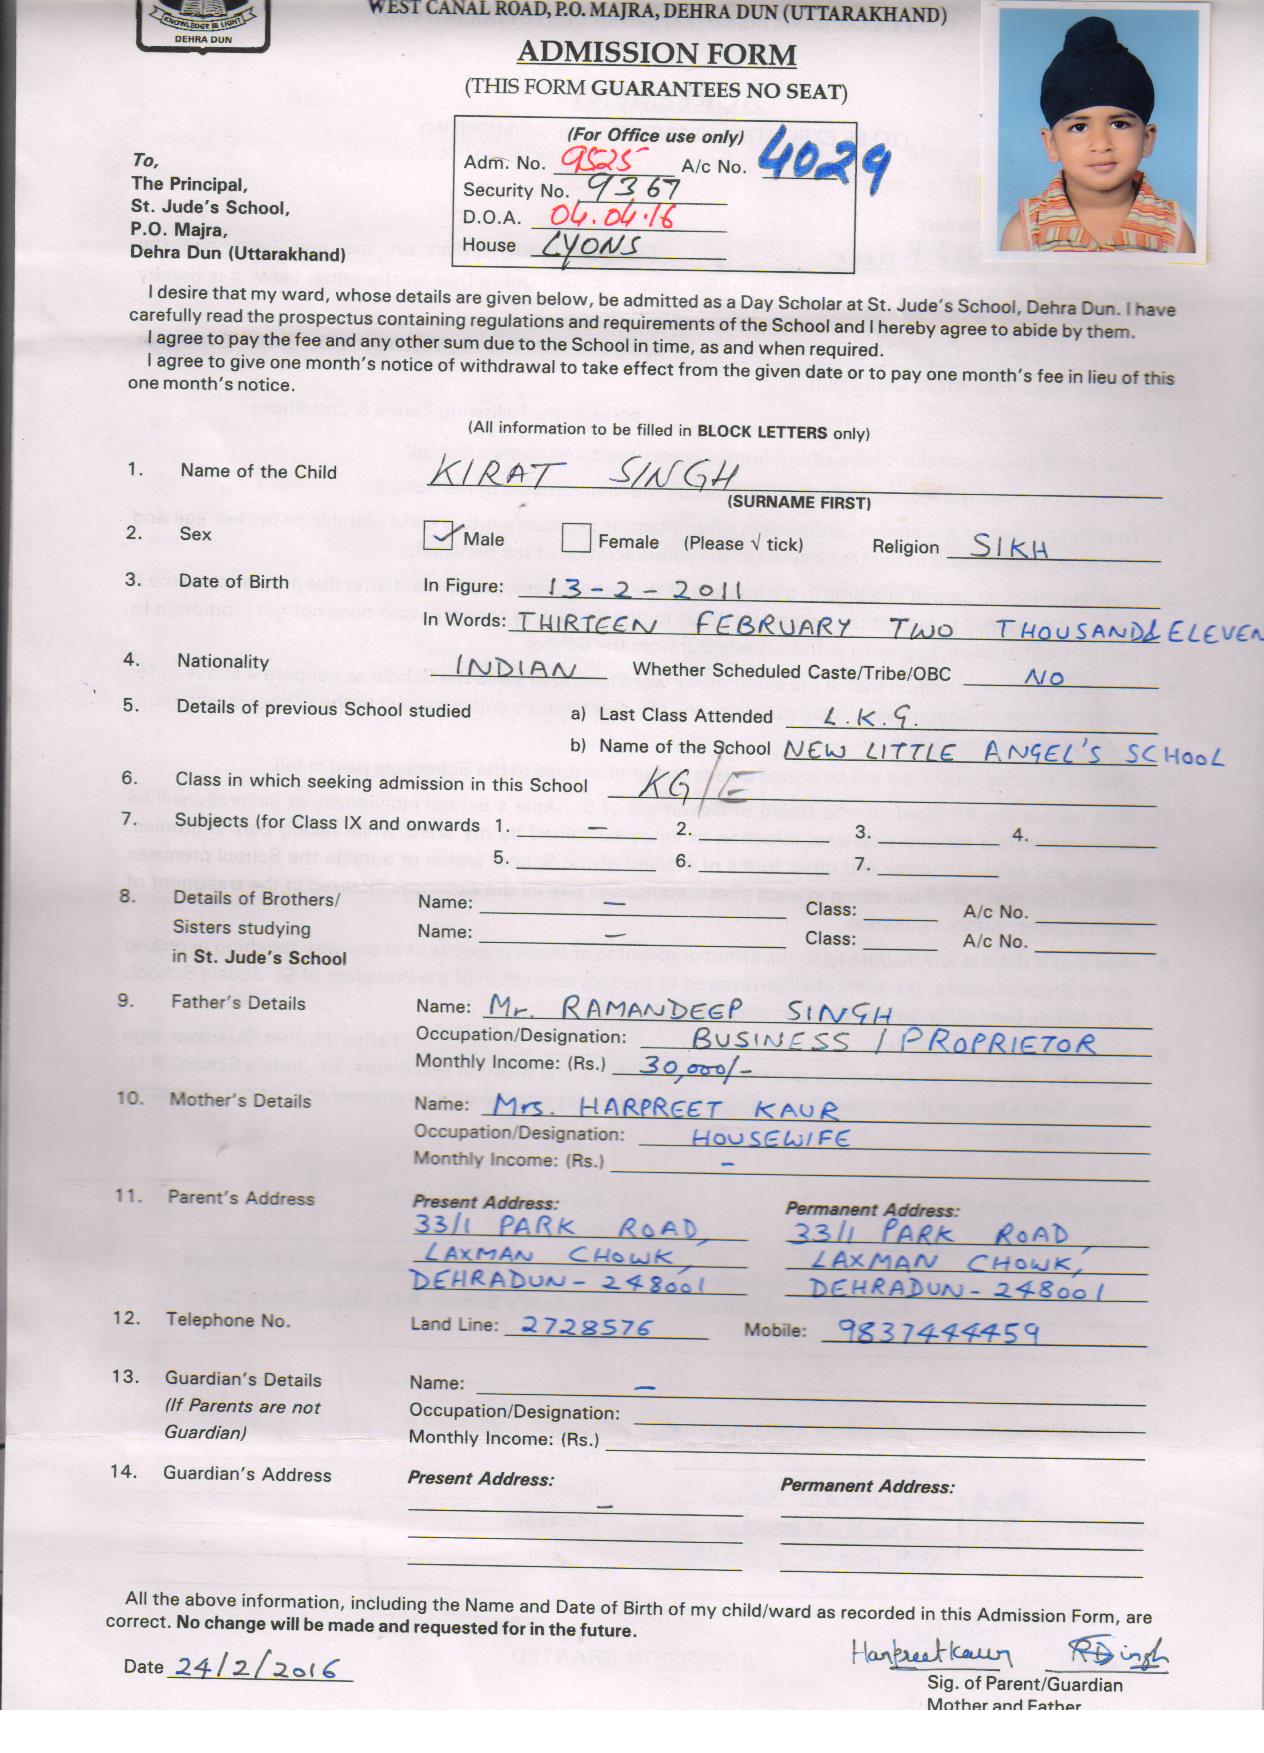 KNOWLEDGE IS LIGHT
DEHRA DUN
WEST CANAL ROAD, P.O. MAJRA, DEHRA DUN (UTTARAKHAND)
ADMISSION FORM
(THIS FORM GUARANTEES NO SEAT)
(For Office use only)
Adm. No. 9525 A/c No. 4029
Security No. 9367
D.O.A. 04.04.16
House LYONS
To,
The Principal,
St. Jude's School,
P.O. Majra,
Dehra Dun (Uttarakhand)
I desire that my ward, whose details are given below, be admitted as a Day Scholar at St. Jude's School, Dehra Dun. I have
carefully read the prospectus containing regulations and requirements of the School and I hereby agree to abide by them.
I agree to pay the fee and any other sum due to the School in time, as and when required.
I agree to give one month's notice of withdrawal to take effect from the given date or to pay one month's fee in lieu of this
one month's notice.
(All information to be filled in BLOCK LETTERS only)
1. Name of the Child KIRAT SINGH
(SURNAME FIRST)
2. Sex ✓ Male Female (Please √ tick) Religion SIKH
3. Date of Birth In Figure: 13-2-2011
In Words: THIRTEEN FEBRUARY TWO THOUSAND & ELEVEN
4. Nationality INDIAN Whether Scheduled Caste/Tribe/OBC NO
5. Details of previous School studied a) Last Class Attended L.K.G.
b) Name of the School NEW LITTLE ANGEL'S SCHOOL
6. Class in which seeking admission in this School KG/E
7. Subjects (for Class IX and onwards 1. – 2. 3. 4.
5. 6. 7.
8. Details of Brothers/ Name: – Class: A/c No.
Sisters studying Name: – Class: A/c No.
in St. Jude's School
9. Father's Details Name: Mr. RAMANDEEP SINGH
Occupation/Designation: BUSINESS / PROPRIETOR
Monthly Income: (Rs.) 30,000/-
10. Mother's Details Name: Mrs. HARPREET KAUR
Occupation/Designation: HOUSEWIFE
Monthly Income: (Rs.) –
11. Parent's Address Present Address: Permanent Address:
33/1 PARK ROAD, 33/1 PARK ROAD,
LAXMAN CHOWK, LAXMAN CHOWK,
DEHRADUN-248001 DEHRADUN-248001
12. Telephone No. Land Line: 2728576 Mobile: 9837444459
13. Guardian's Details Name: –
(If Parents are not Occupation/Designation:
Guardian) Monthly Income: (Rs.)
14. Guardian's Address Present Address: Permanent Address:
–
All the above information, including the Name and Date of Birth of my child/ward as recorded in this Admission Form, are
correct. No change will be made and requested for in the future.
Date 24/2/2016 Harpreet Kaur RDSingh
Sig. of Parent/Guardian
Mother and Father